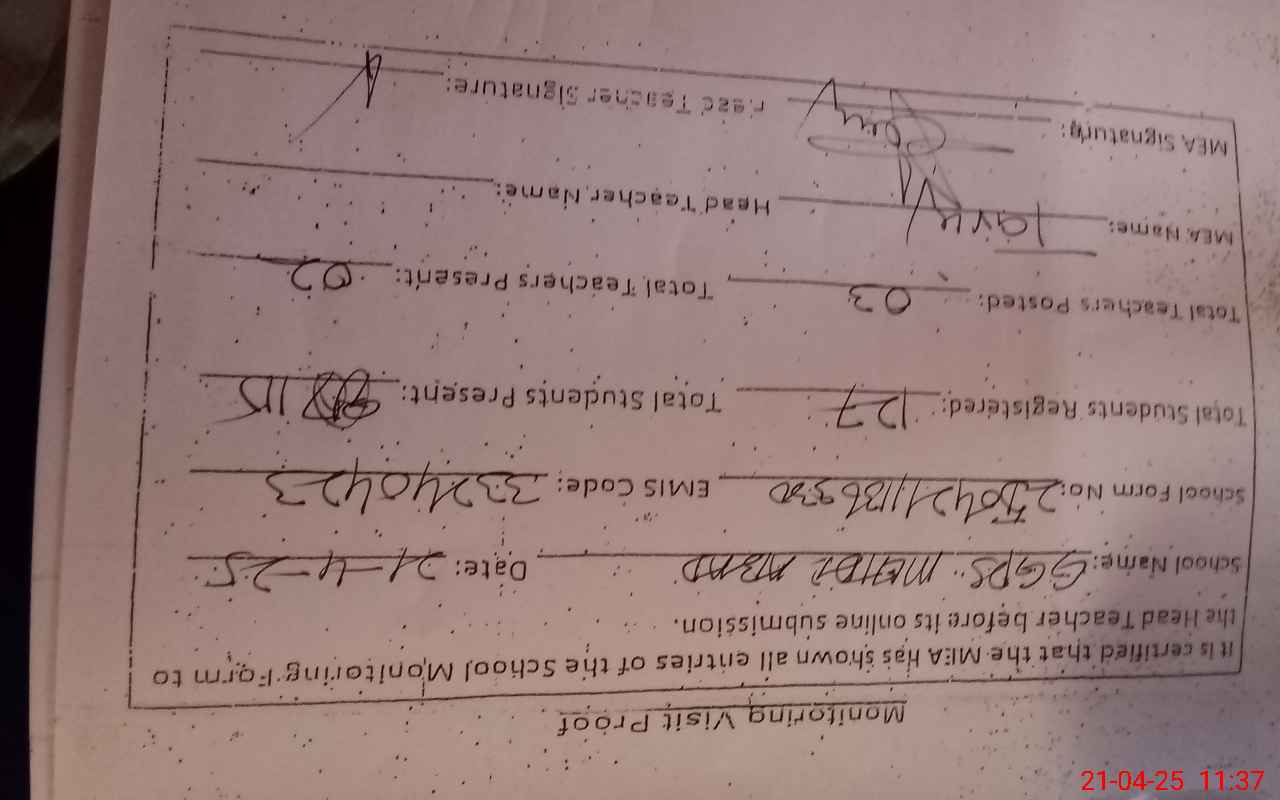 Monitoring Visit Proof
It is certified that the MEA has shown all entries of the School Monitoring Form to
the Head Teacher before its online submission.
School Name: GGPS MEHDI ABAD Date: 21-4-25
School Form No: EMIS Code: 33240423
Total Students Registered: 127 Total Students Present: 115
Total Teachers Posted: 03 Total Teachers Present: 02
MEA Name: Head Teacher Name:
MEA Signature: Head Teacher Signature:
21-04-25 11:37